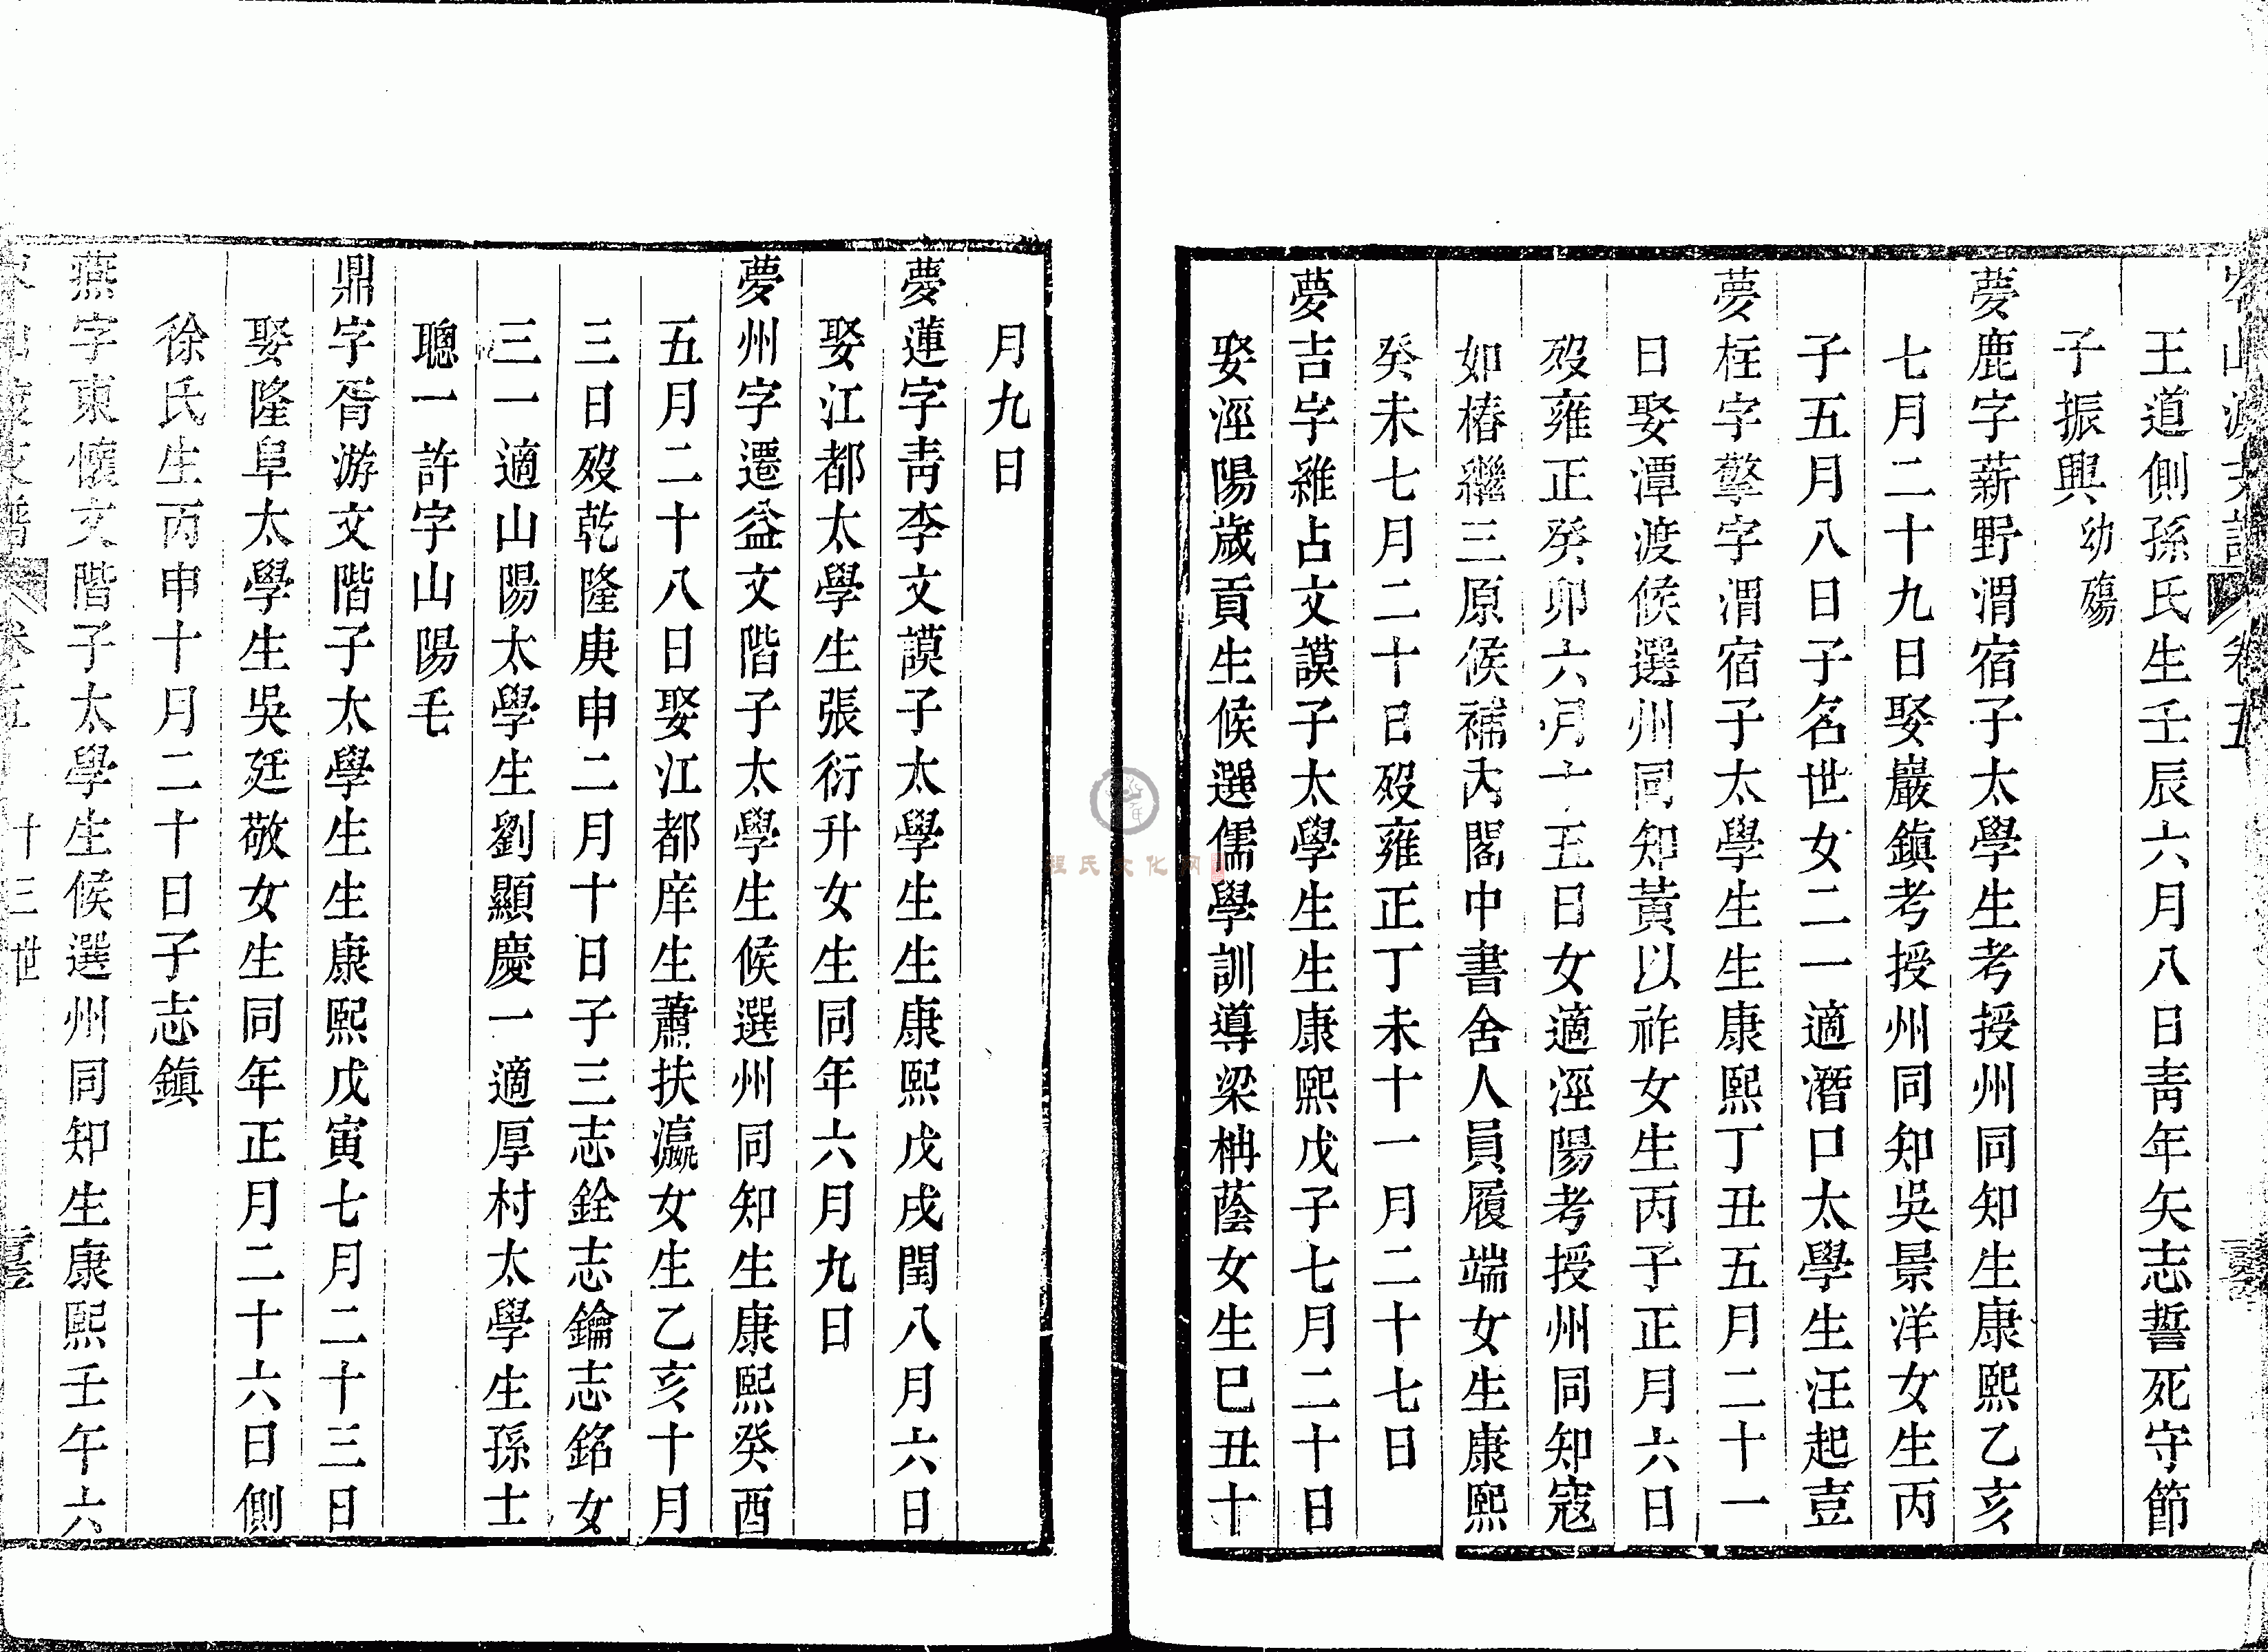 岑山渡支譜 卷五
王道側孫氏生壬辰六月八日青年矢志誓死守節
子振興幼殤
夢鹿字薪野渭宿子太學生考授州同知生康熙乙亥
七月二十九日娶巖鎮考授州同知吳景洋女生丙
子五月八日子名世女二一適潛口太學生汪起壴
夢柱字擎宇渭宿子太學生生康熙丁丑五月二十一
日娶潭渡候選州同知黃以祚女生丙子正月六日
歿雍正癸卯六月十五日女適涇陽考授州同知寇
如椿繼三原候補內閣中書舍人員履端女生康熙
癸未七月二十日歿雍正丁未十一月二十七日
夢吉字維占文謨子太學生生康熙戊子七月二十日
娶涇陽歲貢生候選儒學訓導梁柟蔭女生巳丑十
月九日
夢蓮字青李文謨子太學生生康熙戊戌閏八月六日
娶江都太學生張衍升女生同年六月九日
夢州字遷益文階子太學生候選州同知生康熙癸酉
五月二十八日娶江都庠生蕭扶瀛女生乙亥十月
三日歿乾隆庚申二月十日子三志銓志鑰志銘女
三一適山陽太學生劉顯慶一適厚村太學生孫士
聰一許字山陽毛
鼎字胥游文階子太學生生康熙戊寅七月二十三日
娶隆阜太學生吳廷敬女生同年正月二十六日側
徐氏生丙申十月二十日子志鎮
燕字東懷文階子太學生候選州同知生康熙壬午六
岑山渡支譜 卷五 十三世
程氏文化网